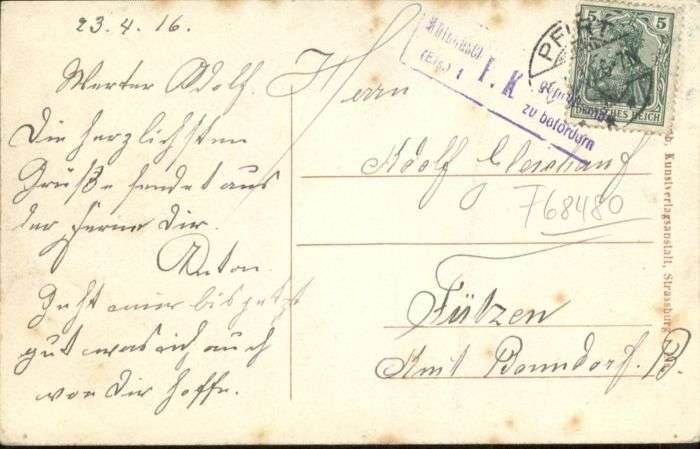 23.4.16.
Werter Adolf.
Die herzlichsten
Grüße sendet aus
der Ferne Dir.
Anton
Geht mir bis jetzt
gut was ich auch
von Dir hoffe.
Herrn
Adolf
768480
Fützen
Amt Bonndorf. B.
(Els.)
I. K
zu befördern
PFIRT
5 5
DEUTSCHES REICH
Kunstverlagsanstalt, Strassburg